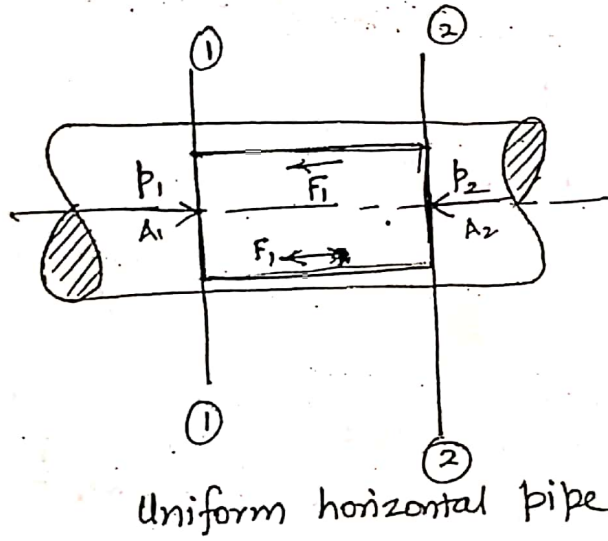 ① ②
p₁ F₁ p₂
A₁ F₁ A₂
① ②
Uniform horizontal pipe